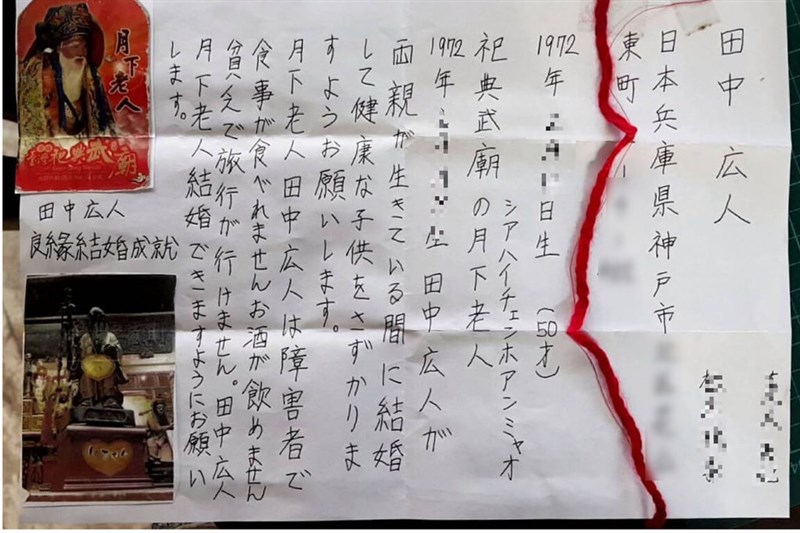 田中 広人
日本兵庫県神戸市
東町
1972年 日生 (50才)
シアハイチェンホアンミャオ
祀典武廟の月下老人
1972年 生 田中広人が
両親が生きている間に結婚
して健康な子供をさずかりま
すようお願いします。
月下老人田中広人は障害者で
食事が食べれませんお酒が飲めません
貧乏で旅行が行けません。田中広人
月下老人結婚できますようにお願い
します。
月下老人
祀典武廟
田中広人
良縁結婚成就